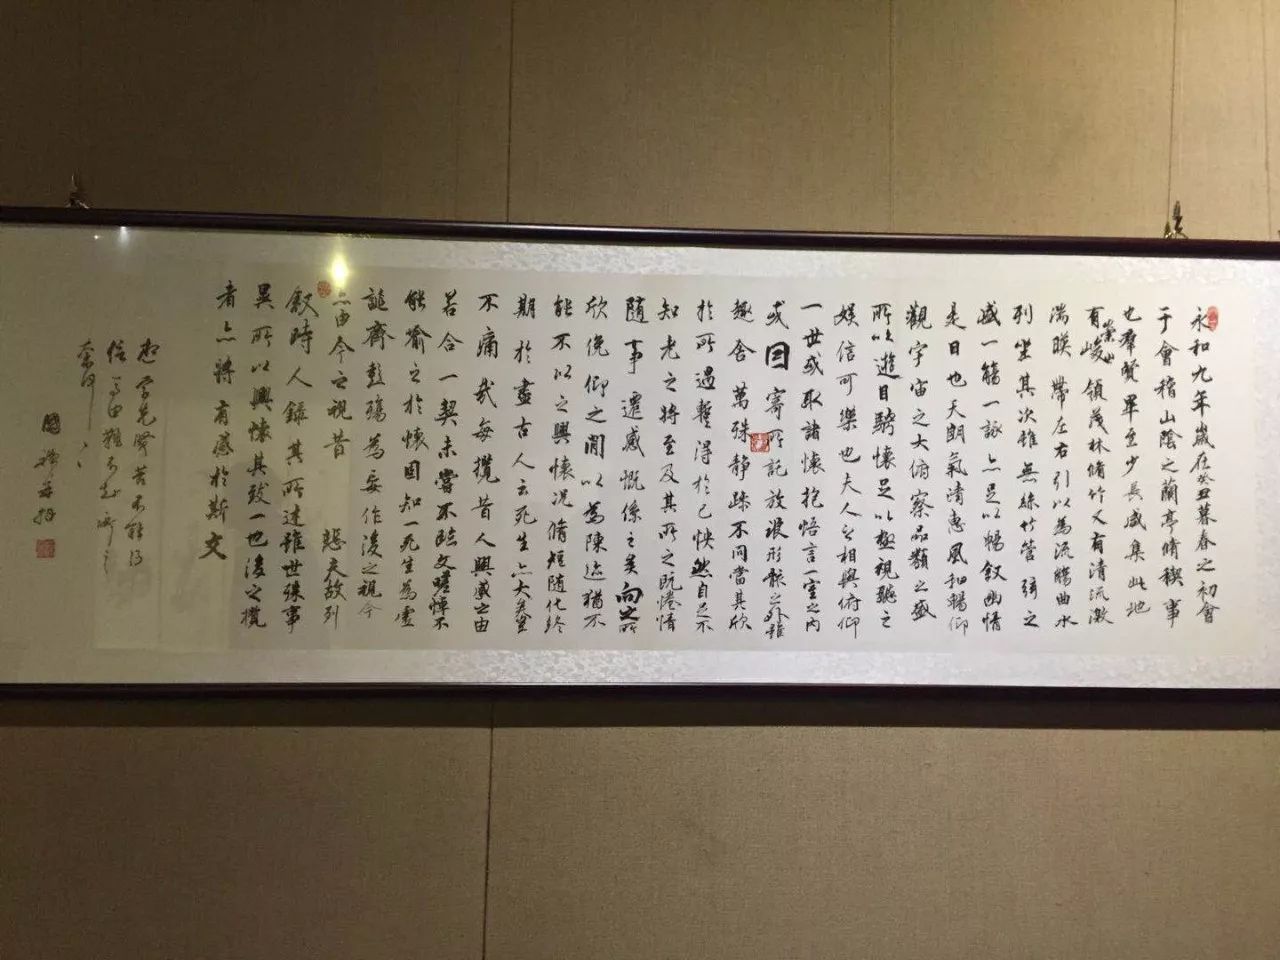 永和九年歲在癸丑暮春之初會
于會稽山陰之蘭亭脩稧事
也羣賢畢至少長咸集此地
有崇山峻領茂林脩竹又有清流激
湍暎帶左右引以為流觴曲水
列坐其次雖無絲竹管弦之
盛一觴一詠亦足以暢敘幽情
是日也天朗氣清惠風和暢仰
觀宇宙之大俯察品類之盛
所以遊目騁懷足以極視聽之
娛信可樂也夫人之相與俯仰
一世或取諸懷抱悟言一室之內
或因寄所託放浪形骸之外雖
趣舍萬殊靜躁不同當其欣
於所遇蹔得於己怏然自足不
知老之將至及其所之既惓情
隨事遷感慨係之矣向之所
欣俛仰之閒以為陳迹猶不
能不以之興懷況脩短隨化終
期於盡古人云死生亦大矣豈
不痛哉每攬昔人興感之由
若合一契未嘗不臨文嗟悼不
能喻之於懷固知一死生為虛
誕齊彭殤為妄作後之視今
亦由今之視昔 悲夫故列
敘時人錄其所述雖世殊事
異所以興懷其致一也後之攬
者亦將有感於斯文